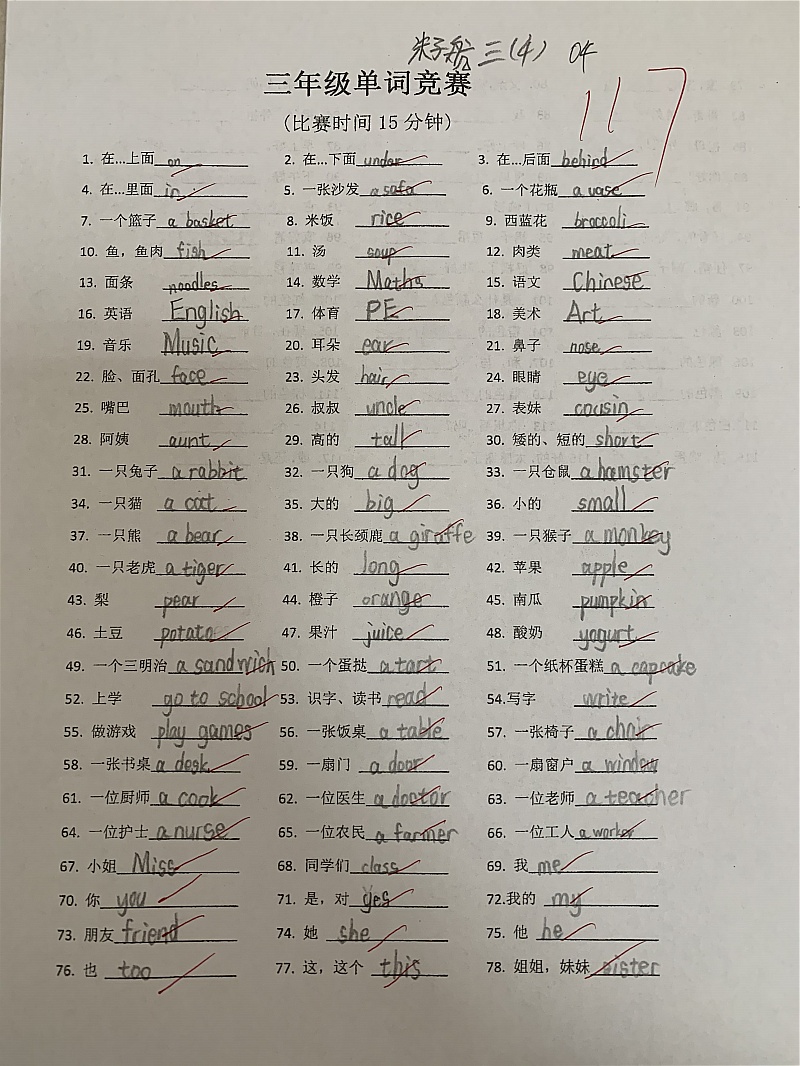 三(4) 04
三年级单词竞赛
117
(比赛时间 15 分钟)
1. 在...上面 on 2. 在...下面 under 3. 在...后面 behind
4. 在...里面 in 5. 一张沙发 a sofa 6. 一个花瓶 a vase
7. 一个篮子 a basket 8. 米饭 rice 9. 西蓝花 broccoli
10. 鱼，鱼肉 fish 11. 汤 soup 12. 肉类 meat
13. 面条 noodles 14. 数学 Maths 15. 语文 Chinese
16. 英语 English 17. 体育 PE 18. 美术 Art
19. 音乐 Music 20. 耳朵 ear 21. 鼻子 nose
22. 脸、面孔 face 23. 头发 hair 24. 眼睛 eye
25. 嘴巴 mouth 26. 叔叔 uncle 27. 表妹 cousin
28. 阿姨 aunt 29. 高的 tall 30. 矮的、短的 short
31. 一只兔子 a rabbit 32. 一只狗 a dog 33. 一只仓鼠 a hamster
34. 一只猫 a cat 35. 大的 big 36. 小的 small
37. 一只熊 a bear 38. 一只长颈鹿 a giraffe 39. 一只猴子 a monkey
40. 一只老虎 a tiger 41. 长的 long 42. 苹果 apple
43. 梨 pear 44. 橙子 orange 45. 南瓜 pumpkin
46. 土豆 potato 47. 果汁 juice 48. 酸奶 yogurt
49. 一个三明治 a sandwich 50. 一个蛋挞 a tart 51. 一个纸杯蛋糕 a capcake
52. 上学 go to school 53. 识字、读书 read 54.写字 write
55. 做游戏 play games 56. 一张饭桌 a table 57. 一张椅子 a chair
58. 一张书桌 a desk 59. 一扇门 a door 60. 一扇窗户 a window
61. 一位厨师 a cook 62. 一位医生 a doctor 63. 一位老师 a teacher
64. 一位护士 a nurse 65. 一位农民 a farmer 66. 一位工人 a worker
67. 小姐 Miss 68. 同学们 class 69. 我 me
70. 你 you 71. 是，对 yes 72.我的 my
73. 朋友 friend 74. 她 she 75. 他 he
76. 也 too 77. 这，这个 this 78. 姐姐，妹妹 sister